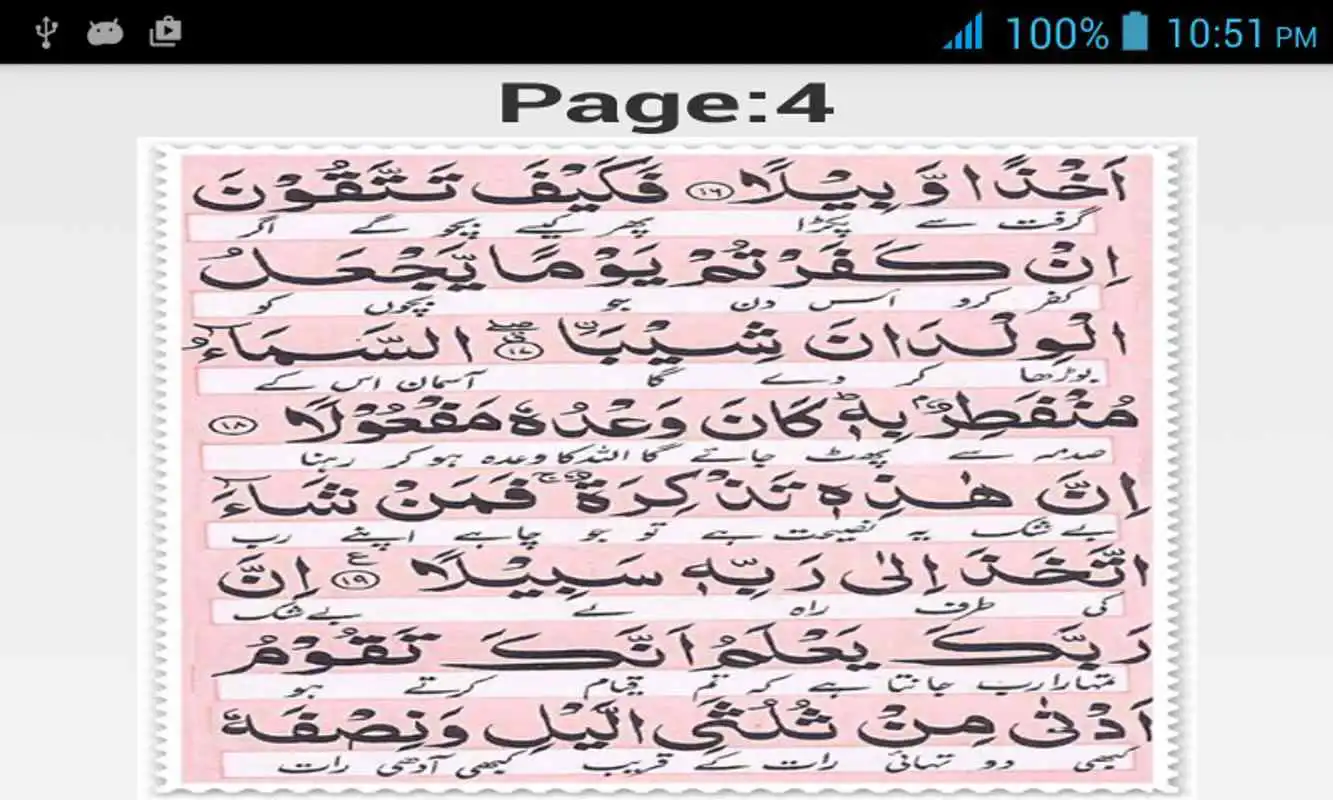 100% 10:51 PM
Page:4
اَخْذًا وَّبِيْلًا ۝۱۶ فَكَيْفَ تَتَّقُوْنَ
گرفت سے پکڑا پھر کیسے بچو گے اگر
اِنْ كَفَرْتُمْ يَوْمًا يَّجْعَلُ
کفر کرو اس دن جو بچوں کو
الْوِلْدَانَ شِيْبَا ۝۱۷ السَّمَآءُ
بوڑھا کر دے گا آسمان اس کے
مُنْفَطِرٌۢ بِهٖ كَانَ وَعْدُهٗ مَفْعُوْلًا ۝۱۸
صدمہ سے پھٹ جائے گا اللہ کا وعدہ ہو کر رہنا
اِنَّ هٰذِهٖ تَذْكِرَةٌ ۚ فَمَنْ شَآءَ
بے شک یہ نصیحت ہے تو جو چاہے اپنے رب
اتَّخَذَ اِلٰى رَبِّهٖ سَبِيْلًا ۝۱۹ ع اِنَّ
کی طرف راہ لے بے شک
رَبَّكَ يَعْلَمُ اَنَّكَ تَقُوْمُ
تمہارا رب جانتا ہے کہ تم قیام کرتے ہو
اَدْنٰى مِنْ ثُلُثَيِ الَّيْلِ وَنِصْفَهٗ
کبھی دو تہائی رات کے قریب کبھی آدھی رات